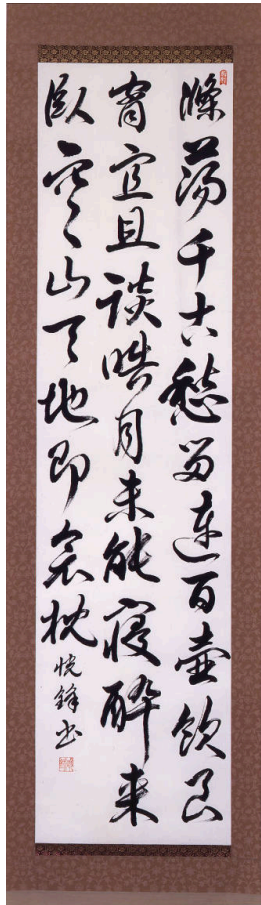 滌蕩千古愁留連百壺飲良
宵宜且談晧月未能寝酔来
臥空山天地即衾枕 悦鋒書